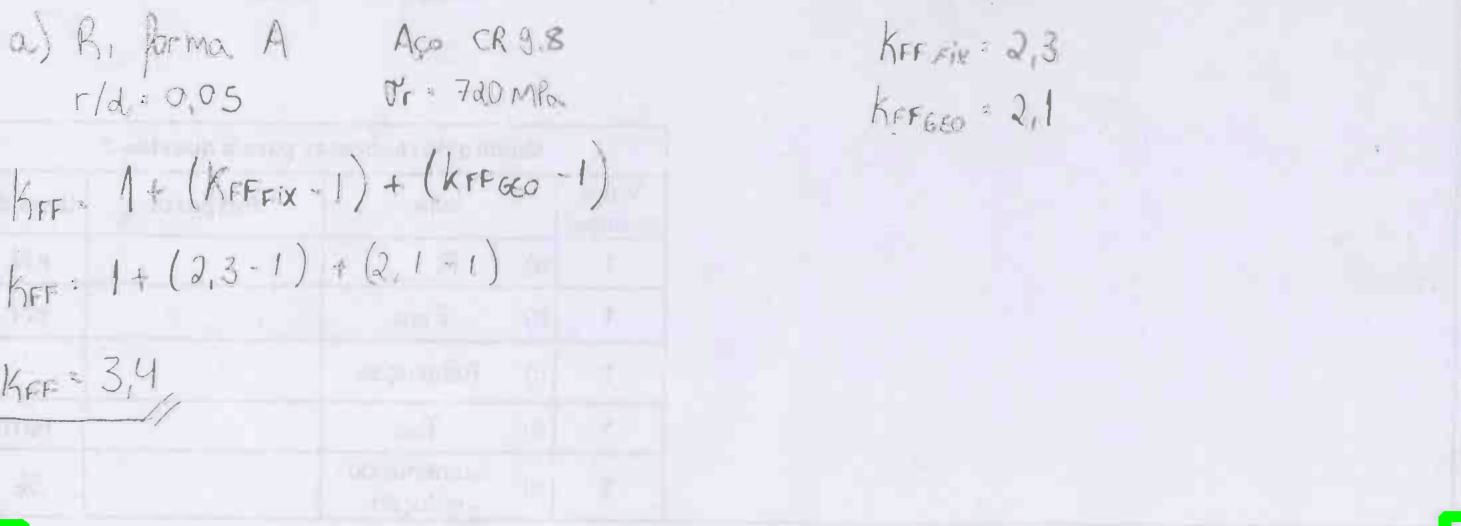 a) R, forma A Aço CR 9.8
r/d = 0,05 σr = 720 MPa
KFF FIX = 2,3
KFF GEO = 2,1
KFF = 1 + (KFF FIX - 1) + (KFF GEO - 1)
KFF = 1 + (2,3 - 1) + (2,1 - 1)
KFF = 3,4